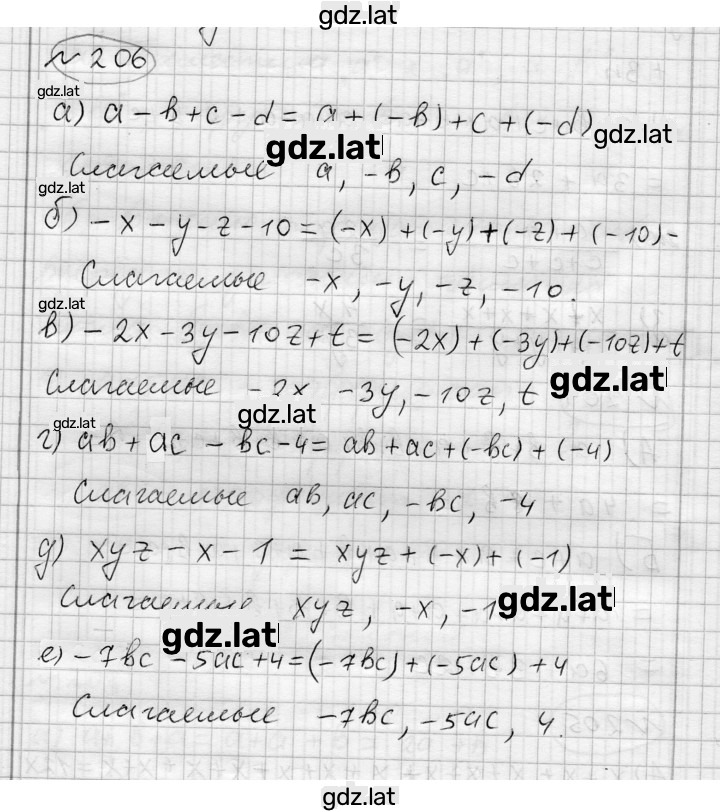 gdz.lat
№ 206
gdz.lat
а) a - b + c - d = a + (-b) + c + (-d)
gdz.lat
gdz.lat
Слагаемые a, -b, c, -d
gdz.lat
б) -x - y - z - 10 = (-x) + (-y) + (-z) + (-10) -
Слагаемые -x, -y, -z, -10.
gdz.lat
в) -2x - 3y - 10z + t = (-2x) + (-3y) + (-10z) + t
Слагаемые -2x -3y, -10z, t
gdz.lat
gdz.lat
gdz.lat
г) ab + ac - bc - 4 = ab + ac + (-bc) + (-4)
Слагаемые ab, ac, -bc, -4
д) xyz - x - 1 = xyz + (-x) + (-1)
Слагаемые xyz, -x, -1
gdz.lat
gdz.lat
е) -7bc - 5ac + 4 = (-7bc) + (-5ac) + 4
Слагаемые -7bc, -5ac, 4.
gdz.lat